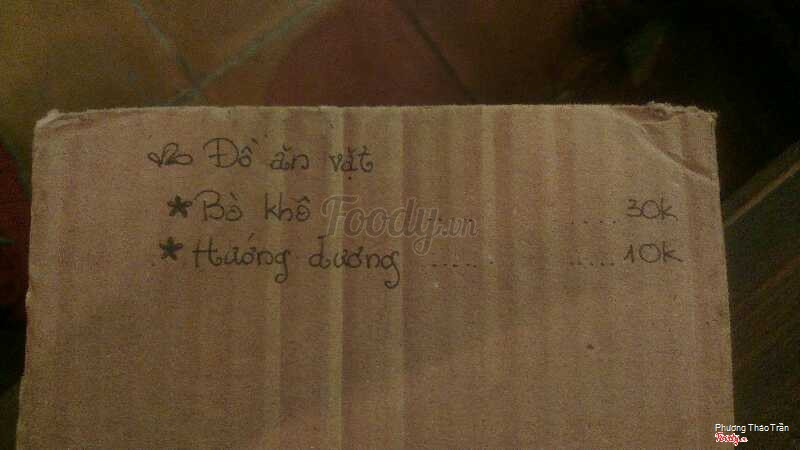 Đồ ăn vặt
* Bò khô ........ 30k
* Hướng dương ........... 10k
Foody.vn
Phương Thảo Trần
Foody.vn